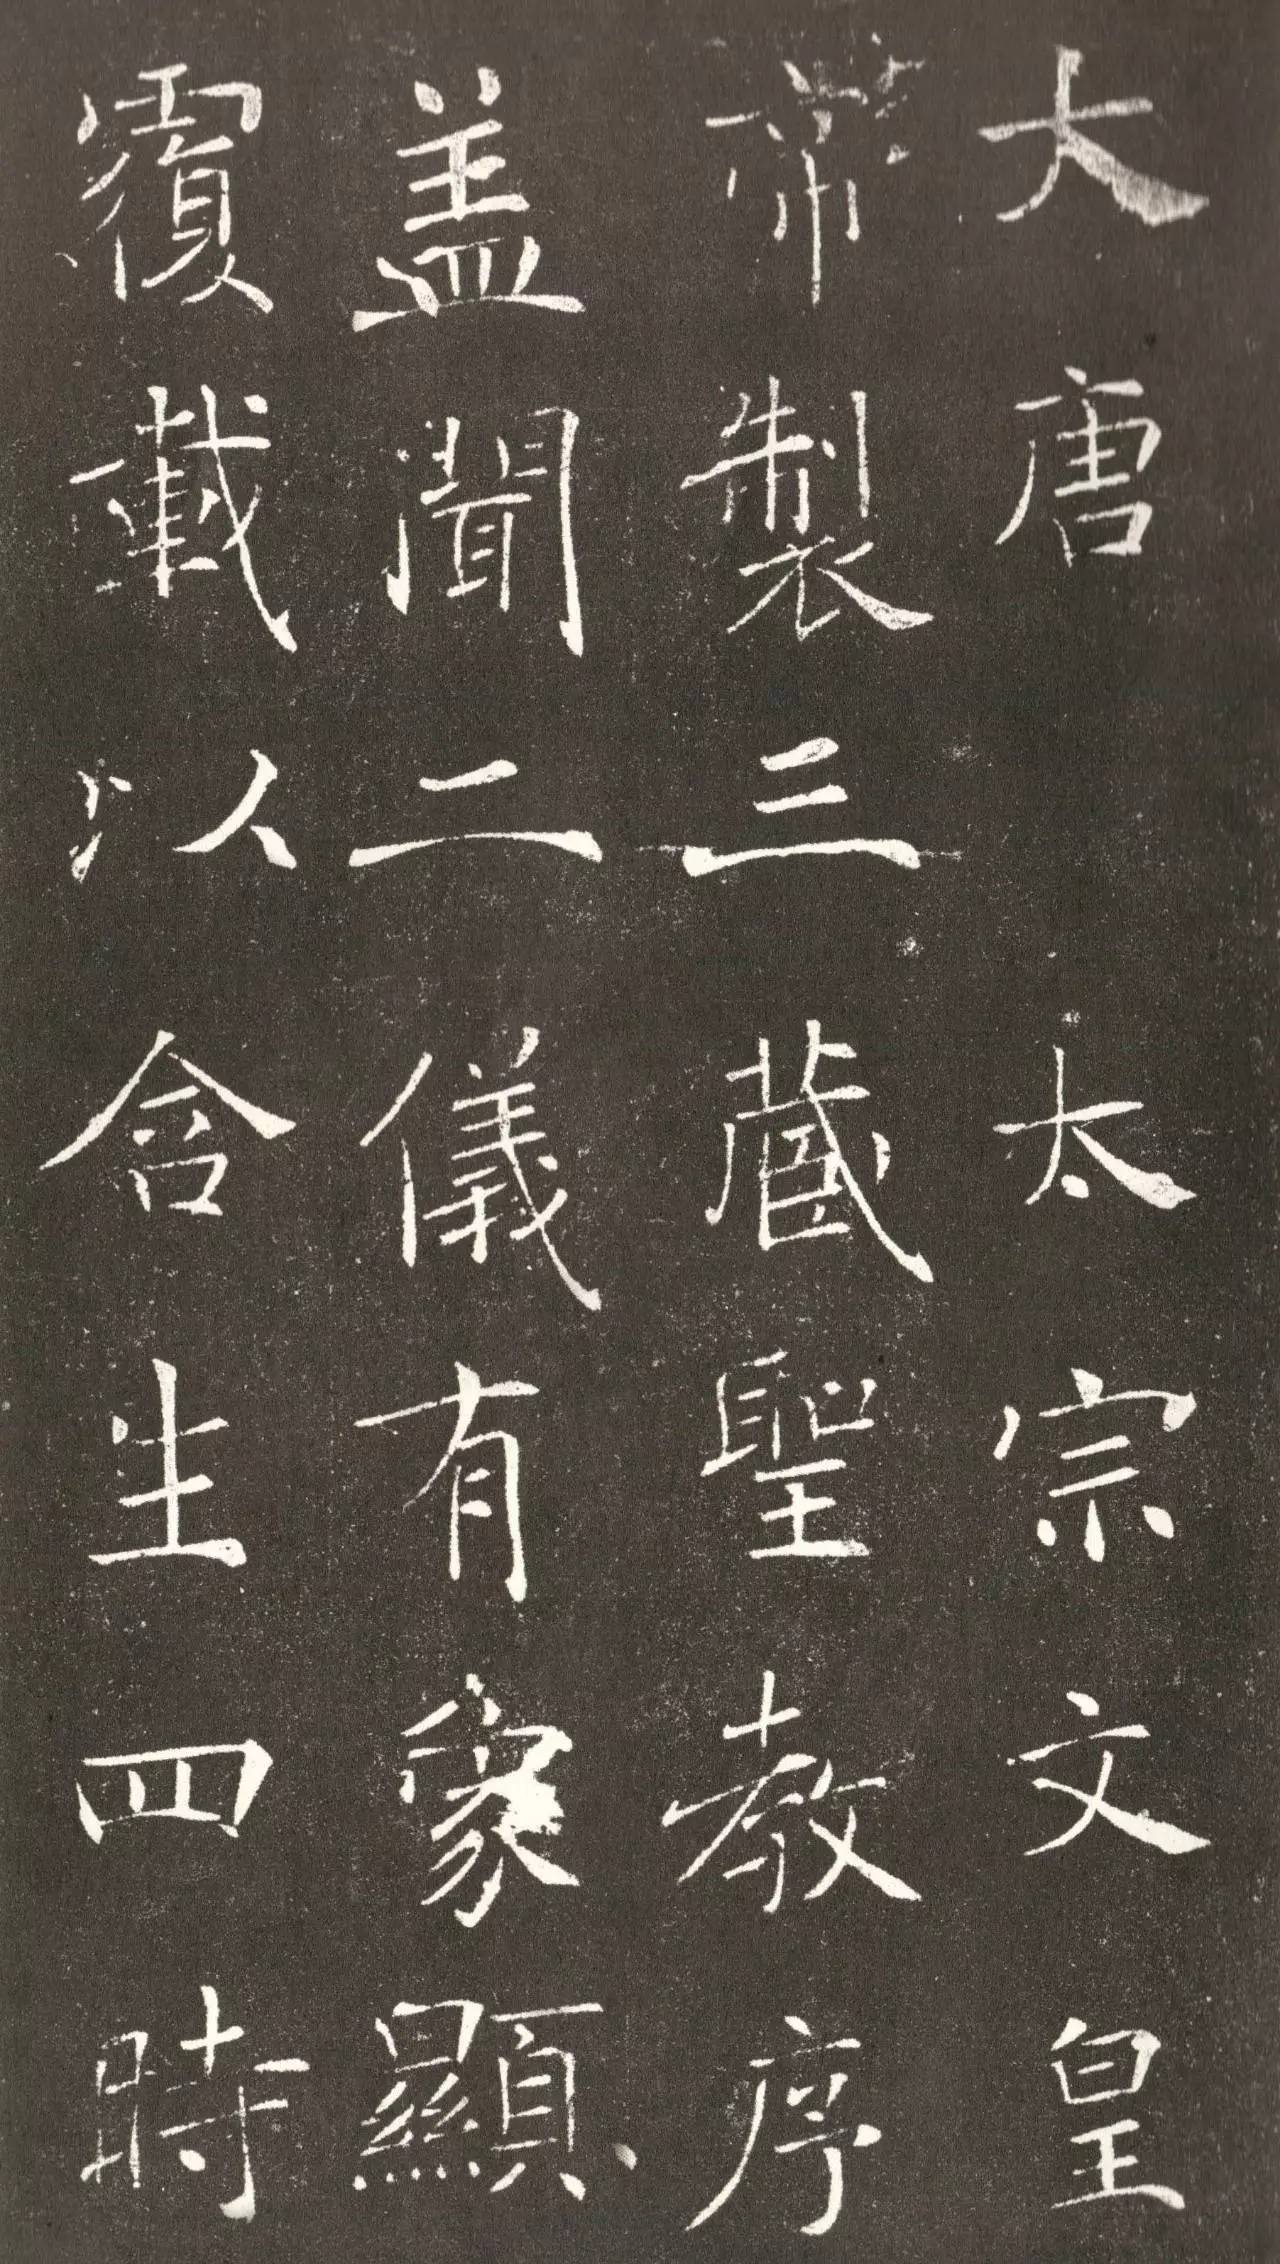 大唐太宗文皇
帝製三藏聖教序
盖聞二儀有象顯
覆載以含生四時